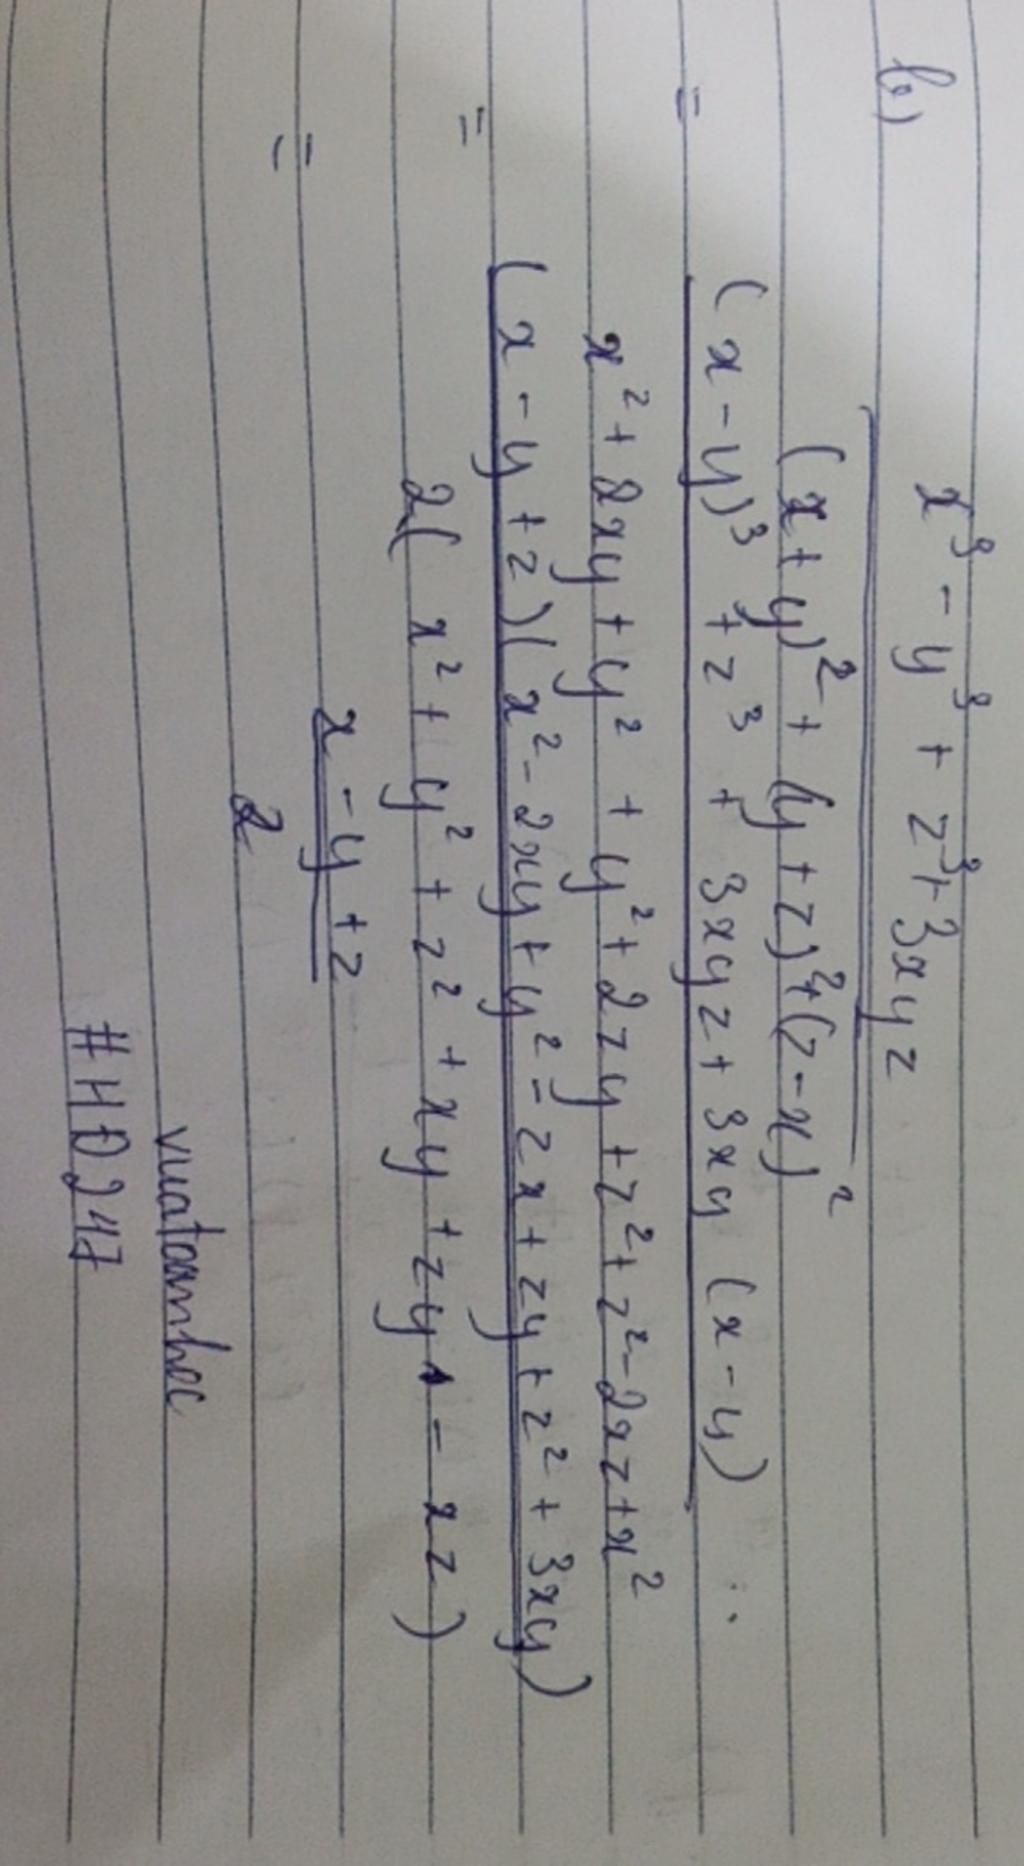 b)
x³ - y³ + z³ + 3xyz
(x + y)² + (y + z)² + (z - x)²
= (x - y)³ + z³ + 3xyz + 3xy (x - y)
x² + 2xy + y² + y² + 2zy + z² + z² - 2xz + x²
= (x - y + z)(x² - 2xy + y² - zx + zy + z² + 3xy)
2(x² + y² + z² + xy + zy - xz)
= x - y + z
2
vuatoanhoc
#HD247